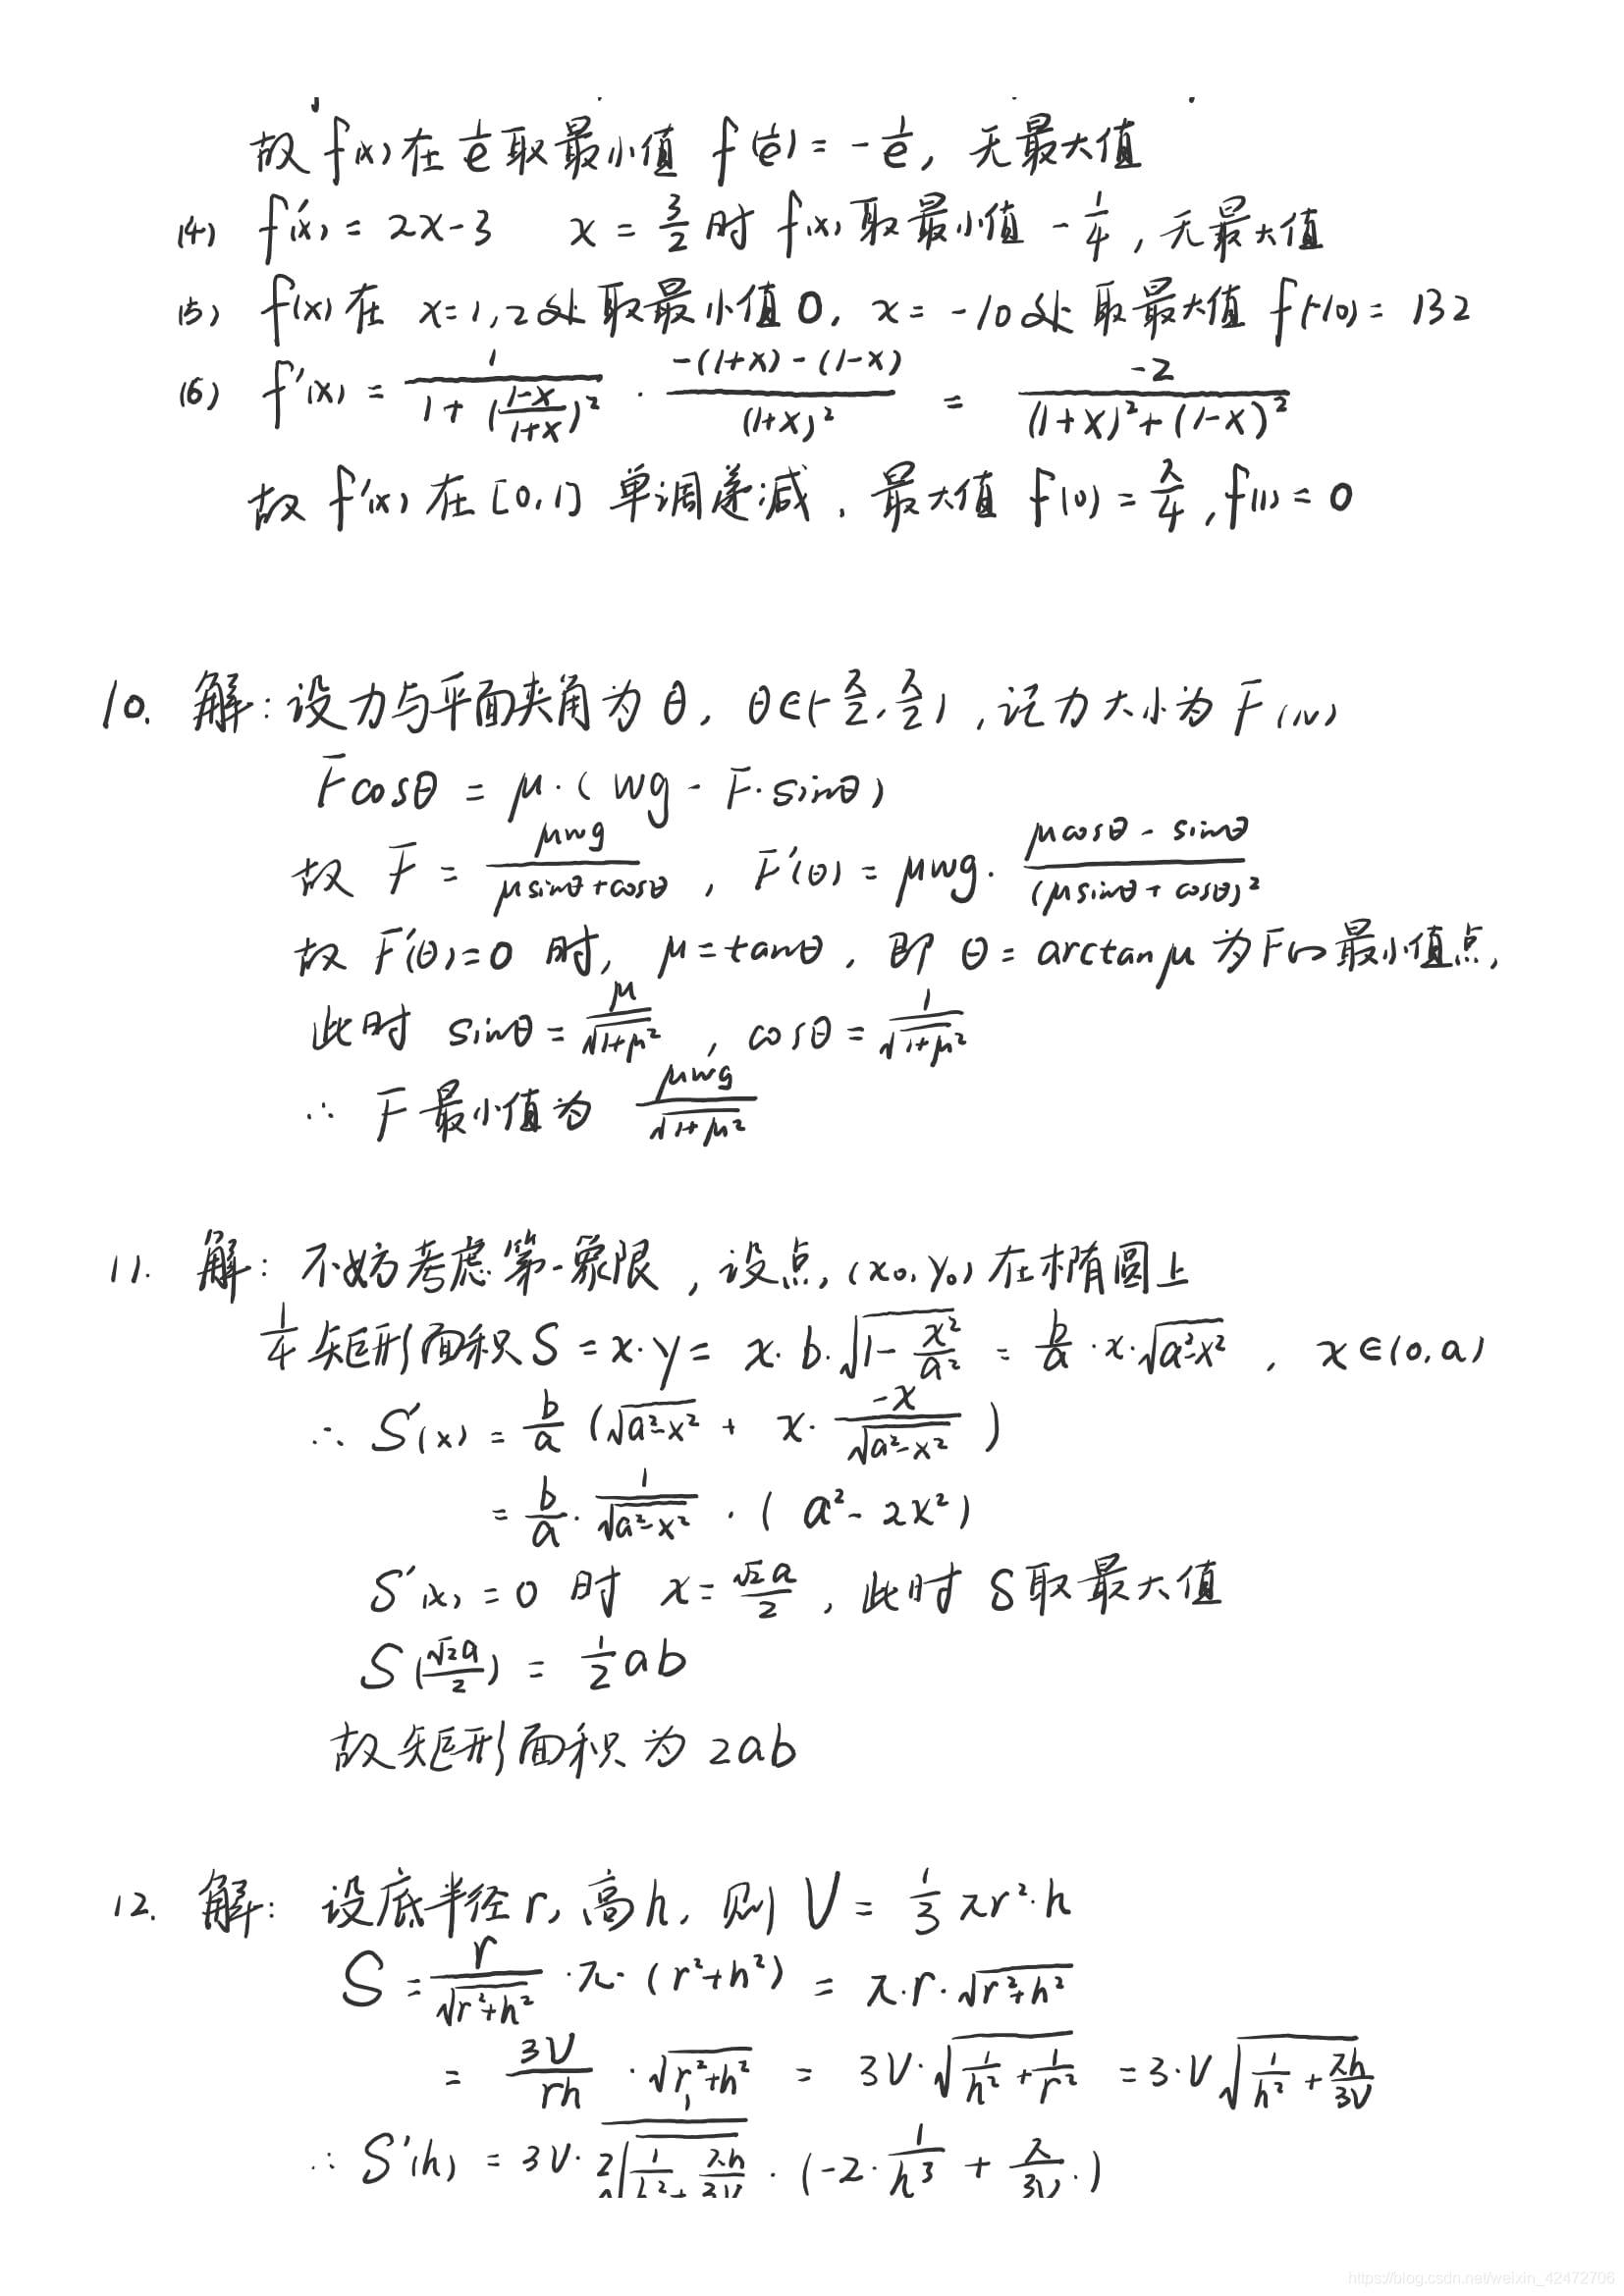 故 f(x) 在 1/e 取最小值 f(1/e) = -1/e, 无最大值
(4) f'(x) = 2x-3 x = 3/2 时 f(x) 取最小值 -1/4, 无最大值
(5) f(x) 在 x=1,2处 取最小值0, x = -10处 取最大值 f(-10) = 132
(6) f'(x) = 1/(1+((1-x)/(1+x))²) · (-(1+x)-(1-x))/(1+x)² = -2/((1+x)²+(1-x)²)
故 f'(x) 在 [0,1] 单调递减, 最大值 f(0) = π/4, f(1) = 0
10. 解: 设力与平面夹角为 θ, θ∈(-π/2, π/2), 记力大小为 F (N)
Fcosθ = μ·(wg - F·sinθ)
故 F = μwg/(μsinθ+cosθ), F'(θ) = μwg· (μcosθ - sinθ)/(μsinθ+cosθ)²
故 F'(θ)=0 时, μ=tanθ, 即 θ=arctanμ 为F的最小值点,
此时 sinθ = μ/√(1+μ²), cosθ = 1/√(1+μ²)
∴ F最小值为 μwg/√(1+μ²)
11. 解: 不妨考虑第一象限, 设点, (x₀, y₀) 在椭圆上
1/4 矩形面积 S = x·y = x·b·√(1-x²/a²) = b/a ·x·√(a²-x²), x∈(0,a)
∴ S'(x) = b/a (√(a²-x²) + x· -x/√(a²-x²))
= b/a · 1/√(a²-x²) · (a²-2x²)
S'(x)=0 时 x=√2a/2, 此时 S取最大值
S(√2a/2) = 1/2 ab
故矩形面积为 2ab
12. 解: 设底半径 r, 高h, 则 V = 1/3 πr²·h
S = r/√(r²+h²) ·π· (r²+h²) = π·r·√(r²+h²)
= 3V/rh · √(r²+h²) = 3V·√(1/h²+1/r²) = 3·V√(1/h²+πh/3V)
∴ S'(h) = 3V· 1/(2√(1/h²+πh/3V)) · (-2· 1/h³ + π/3V·)
https://blog.csdn.net/weixin_42472706